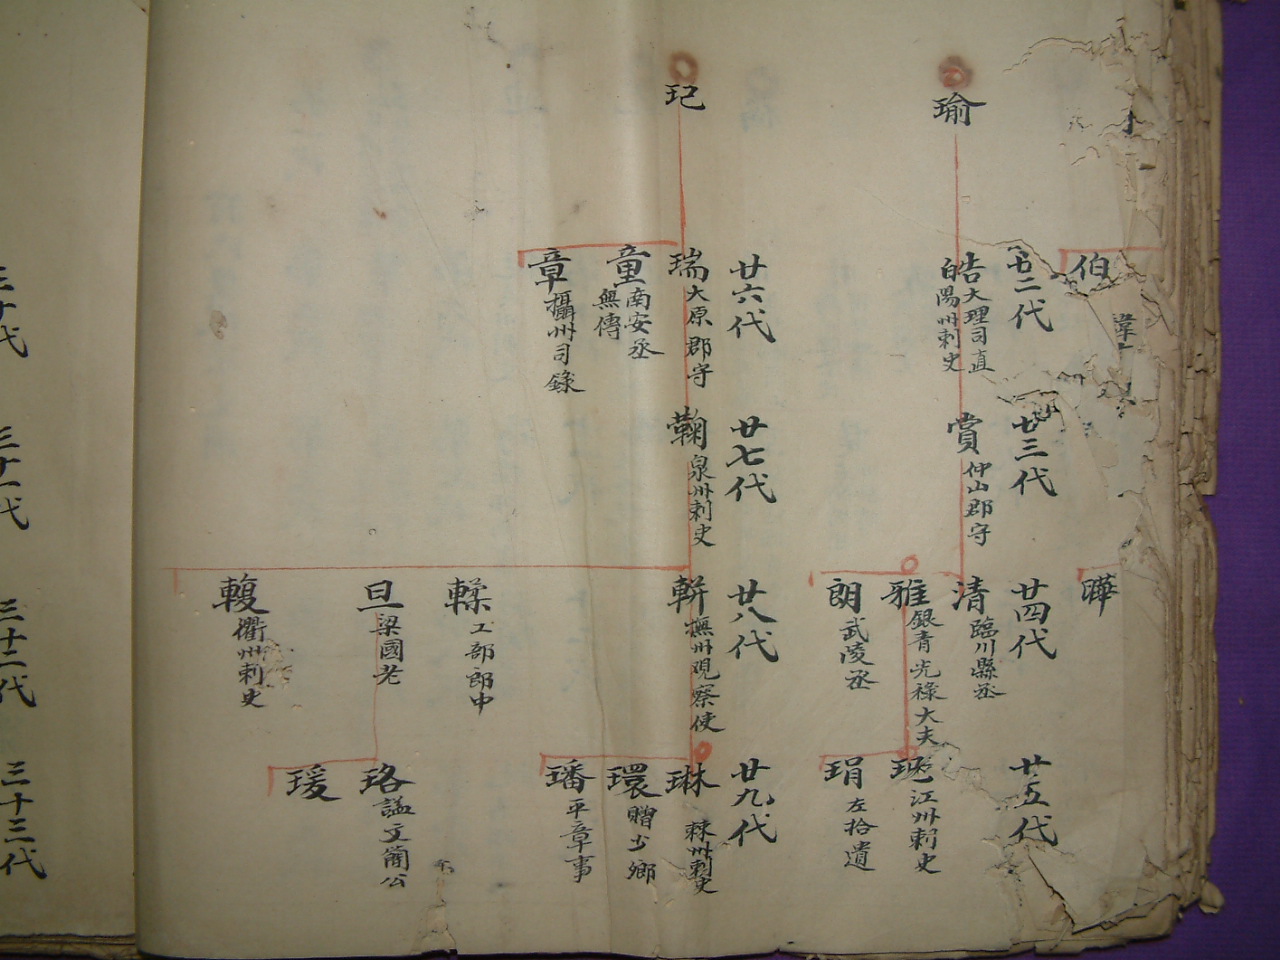 伯
曄
瑜
廿二代
皓 大理司直
陽州刺史
廿三代
賞 仲山郡守
廿四代
清 臨川縣丞
雅 銀青光祿大夫
朗 武陵丞
廿五代
江州刺史
琄 左拾遺
玘
廿六代
瑞 大原郡守
童 南安丞
無傳
章 攝州司錄
廿七代
鞠 泉州刺史
廿八代
軿 撫州觀察使
輮 工部郎中
旦 梁國老
輹 衢州刺史
廿九代
琳 棣州刺史
環 贈少卿
璠 平章事
珞 謚文簡公
瑗
三十代
三十一代
三十二代
三十三代